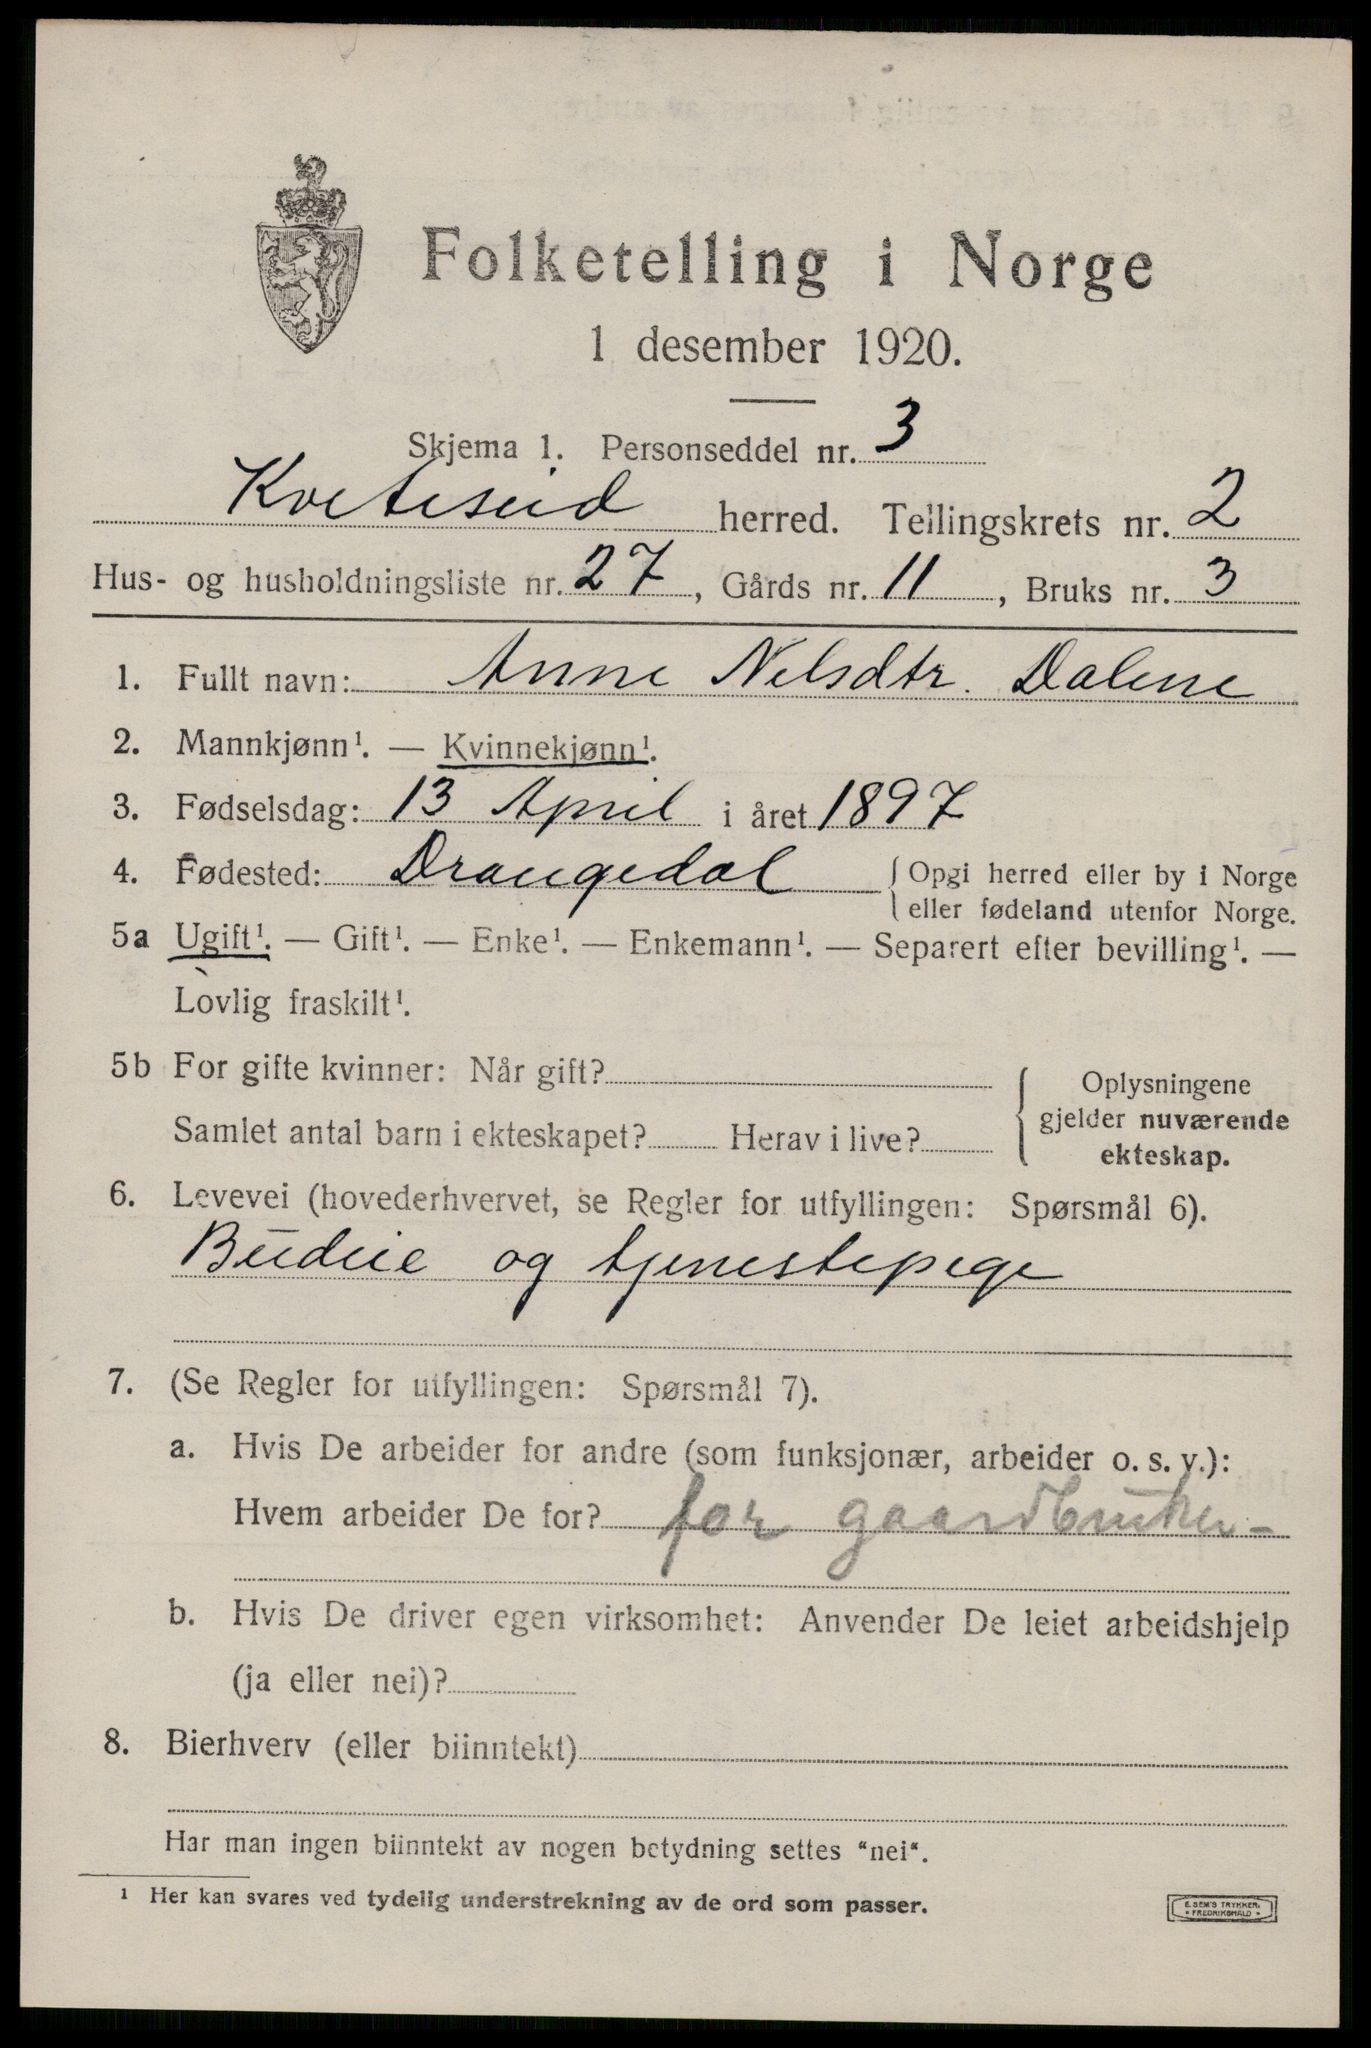 Folketelling i Norge
1 desember 1920.
Skjema 1. Personseddel nr. 3
Kviteseid herred. Tellingskrets nr. 2
Hus- og husholdningsliste nr. 27, Gårds nr. 11, Bruks nr. 3
1. Fullt navn: Anne Nelsdtr. Dalene
2. Mannkjønn¹. — Kvinnekjønn¹.
3. Fødselsdag: 13 April i året 1897
4. Fødested: Drangedal { Opgi herred eller by i Norge
eller fødeland utenfor Norge.
5a Ugift¹. — Gift¹. — Enke¹. — Enkemann¹. — Separert efter bevilling¹. —
Lovlig fraskilt¹.
5b For gifte kvinner: Når gift?
Samlet antal barn i ekteskapet? Herav i live?
Oplysningene
gjelder nuværende
ekteskap.
6. Levevei (hovederhvervet, se Regler for utfyllingen: Spørsmål 6).
Budeie og tjenestepige
7. (Se Regler for utfyllingen: Spørsmål 7).
a. Hvis De arbeider for andre (som funksjonær, arbeider o. s. v.):
Hvem arbeider De for? for gaardbruker-
b. Hvis De driver egen virksomhet: Anvender De leiet arbeidshjelp
(ja eller nei)?
8. Bierhverv (eller biinntekt)
Har man ingen biinntekt av nogen betydning settes "nei".
¹ Her kan svares ved tydelig understrekning av de ord som passer.
E. SEM'S TRYKKERI
FREDRIKSHALD